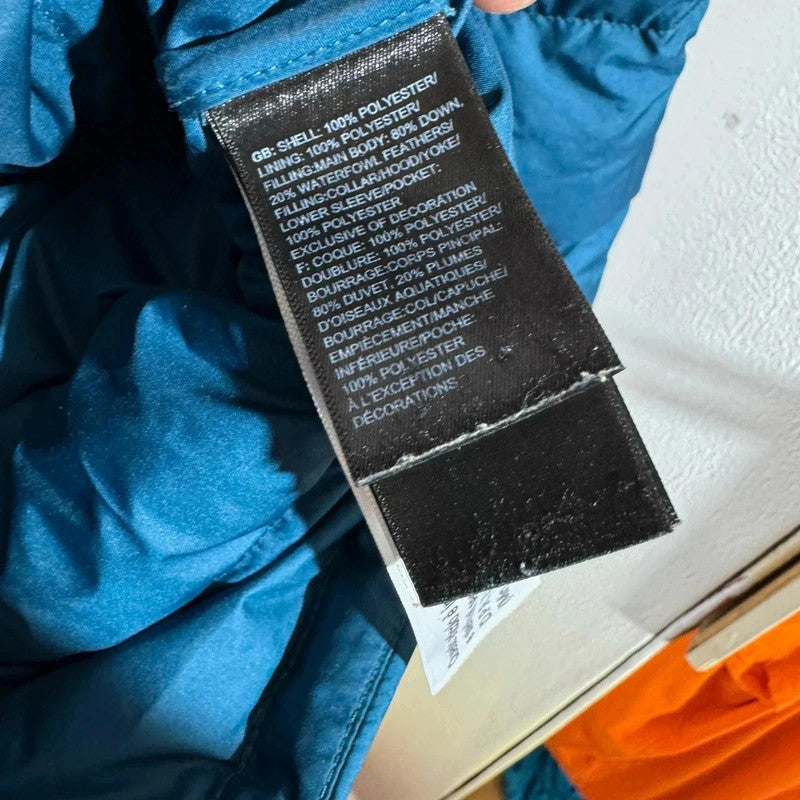 GB: SHELL: 100% POLYESTER/
LINING: 100% POLYESTER/
FILLING:MAIN BODY: 80% DOWN.
20% WATERFOWL FEATHERS/
FILLING:COLLAR/HOOD/YOKE/
LOWER SLEEVE/POCKET:
100% POLYESTER
EXCLUSIVE OF DECORATION
F: COQUE: 100% POLYESTER/
DOUBLURE: 100% POLYESTER/
BOURRAGE:CORPS PINCIPAL:
80% DUVET, 20% PLUMES
D'OISEAUX AQUATIQUES/
BOURRAGE:COL/CAPUCHE/
EMPIÈCEMENT/MANCHE
INFÉRIEURE/POCHE:
100% POLYESTER
À L'EXCEPTION DES
DÉCORATIONS